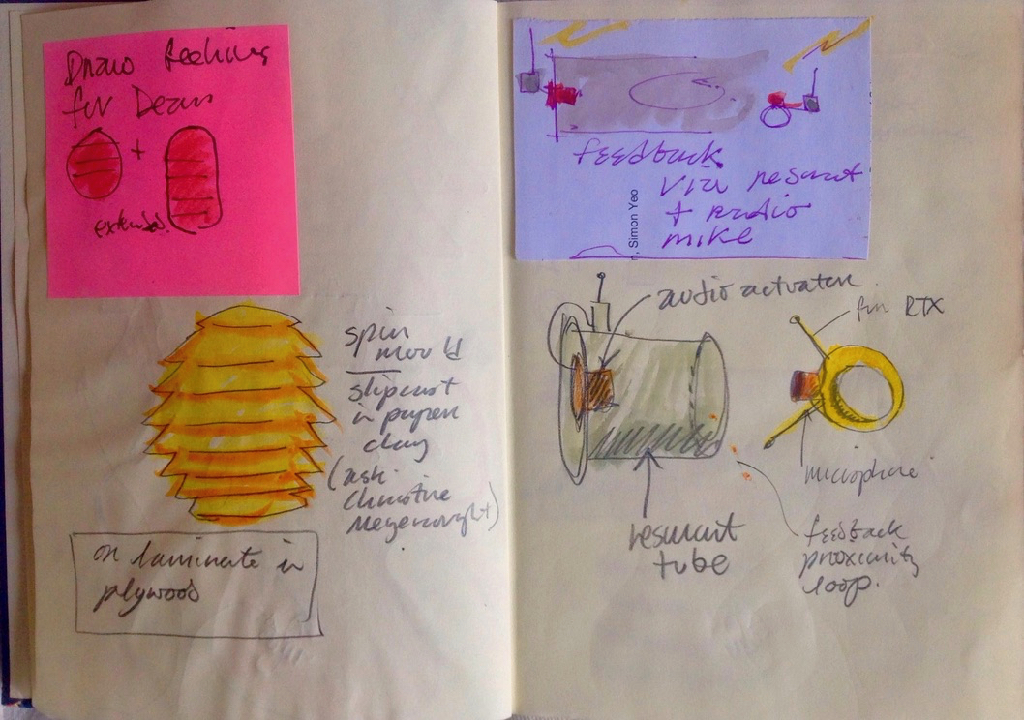 Draw Beehives
for Dean
+
extended
spin
mould
slipcast
in paper
clay
(ask
Christine
or laminate in
plywood
feedback
via resonant
+ radio
mike
r, Simon Yeo
audio actuator
for RTX
microphone
resonant
tube
feedback
proximity
loop.